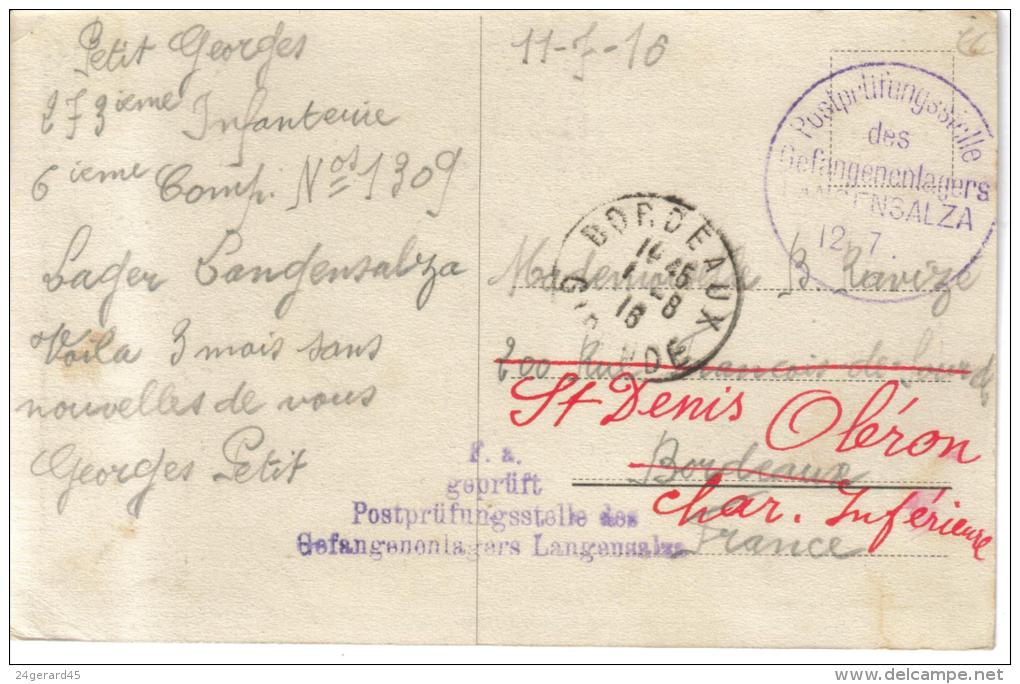 Petit Georges
273ième Infanterie
6ième Comp. Nos 1309
Lager Langensalza
Voila 3 mois sans
nouvelles de vous
Georges Petit
11-7-16
Postprüfungsstelle
des
Gefangenenlagers
LANGENSALZA
12 7
BORDEAUX
GIRONDE
16
Mademoiselle B. Ravizé
200 Rue François de
St Denis Oléron
Bordeaux
Char. Inférieure
France
F. a.
geprüft
Postprüfungsstelle des
Gefangenenlagers Langensalza
24gerard45
www.delcampe.net